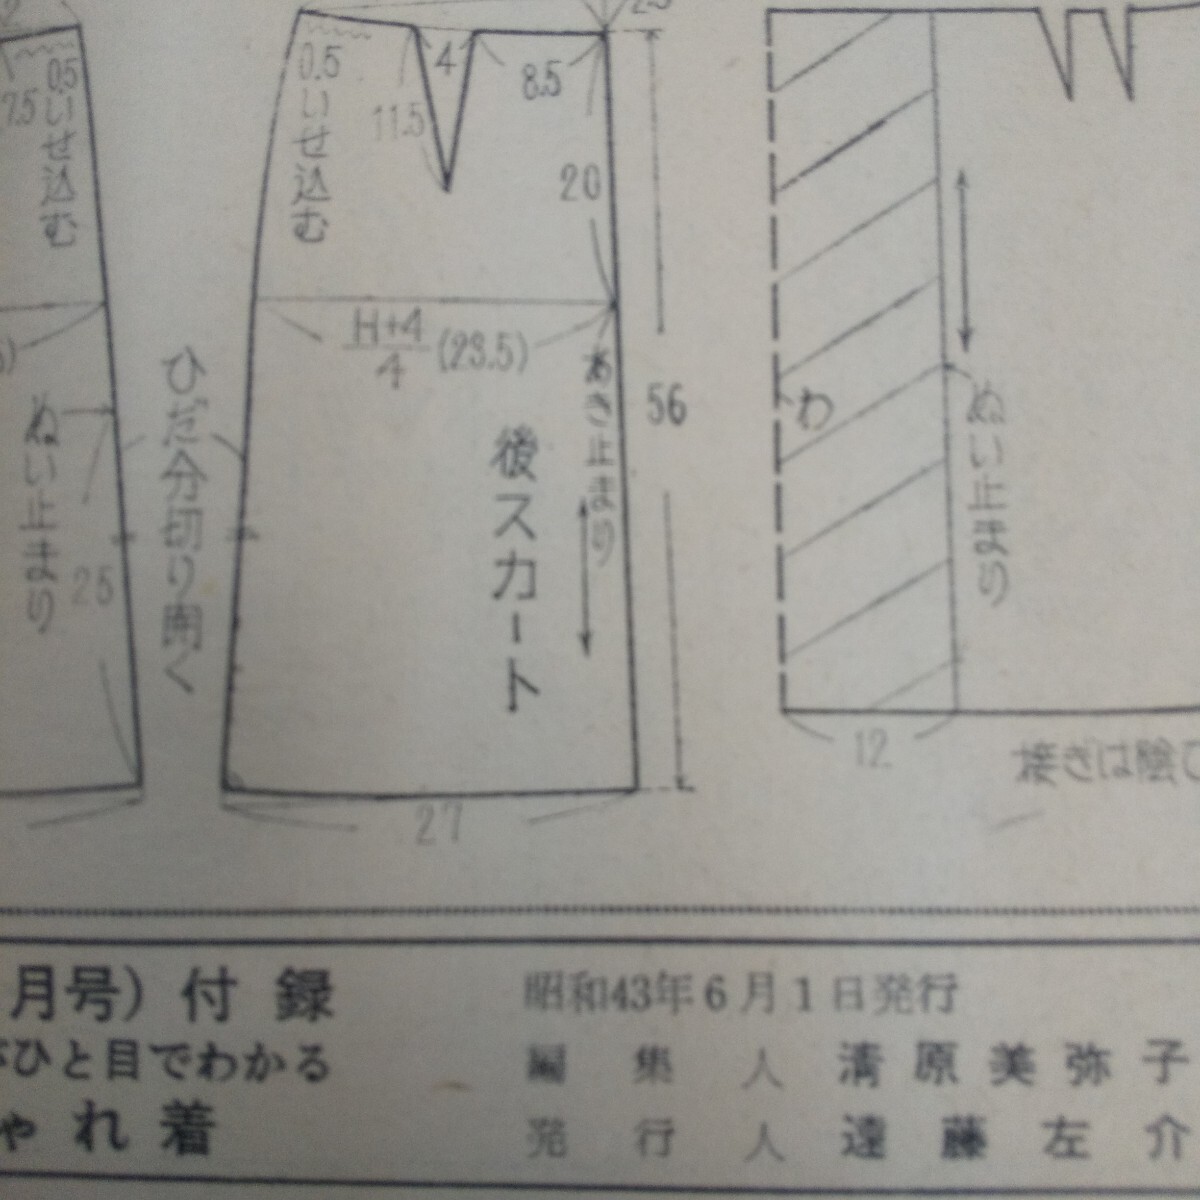 0.5いせ込む
7.5
ぬい止まり
25
ひだ分切り開く
0.5いせ込む
4
11.5
8.5
20
H+4
4
(23.5)
あき止まり
後スカート
56
27
わ
ぬい止まり
12
接ぎは陰ひ
月号)付録
昭和43年6月1日発行
ひと目でわかる
編集人 清原美弥子
ゃれ着
発行人 遠藤左介